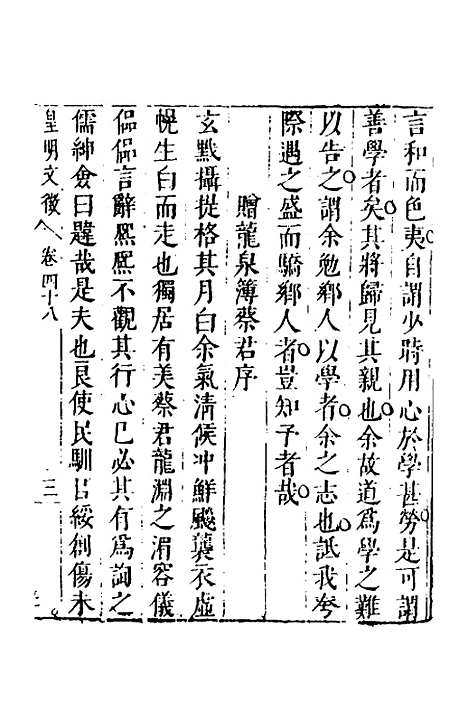 言和而色夷自謂少時用心於學甚勞是可謂
善學者矣其將歸見其親也余故道爲學之難
以告之謂余勉鄉人以學者余之志也詆我夸
際遇之盛而驕鄉人者豈知予者哉
贈龍泉簿蔡君序
玄黓攝提格其月白余氣清候冲鮮飈襲衣虛
幌生白而走也獨居有美蔡君龍淵之湄容儀
偘偘言辭熈熈不觀其行心已必其有爲詢之
儒紳僉曰韙哉是夫也艮使民馴甘綏創傷未
皇明文徵 卷四十八